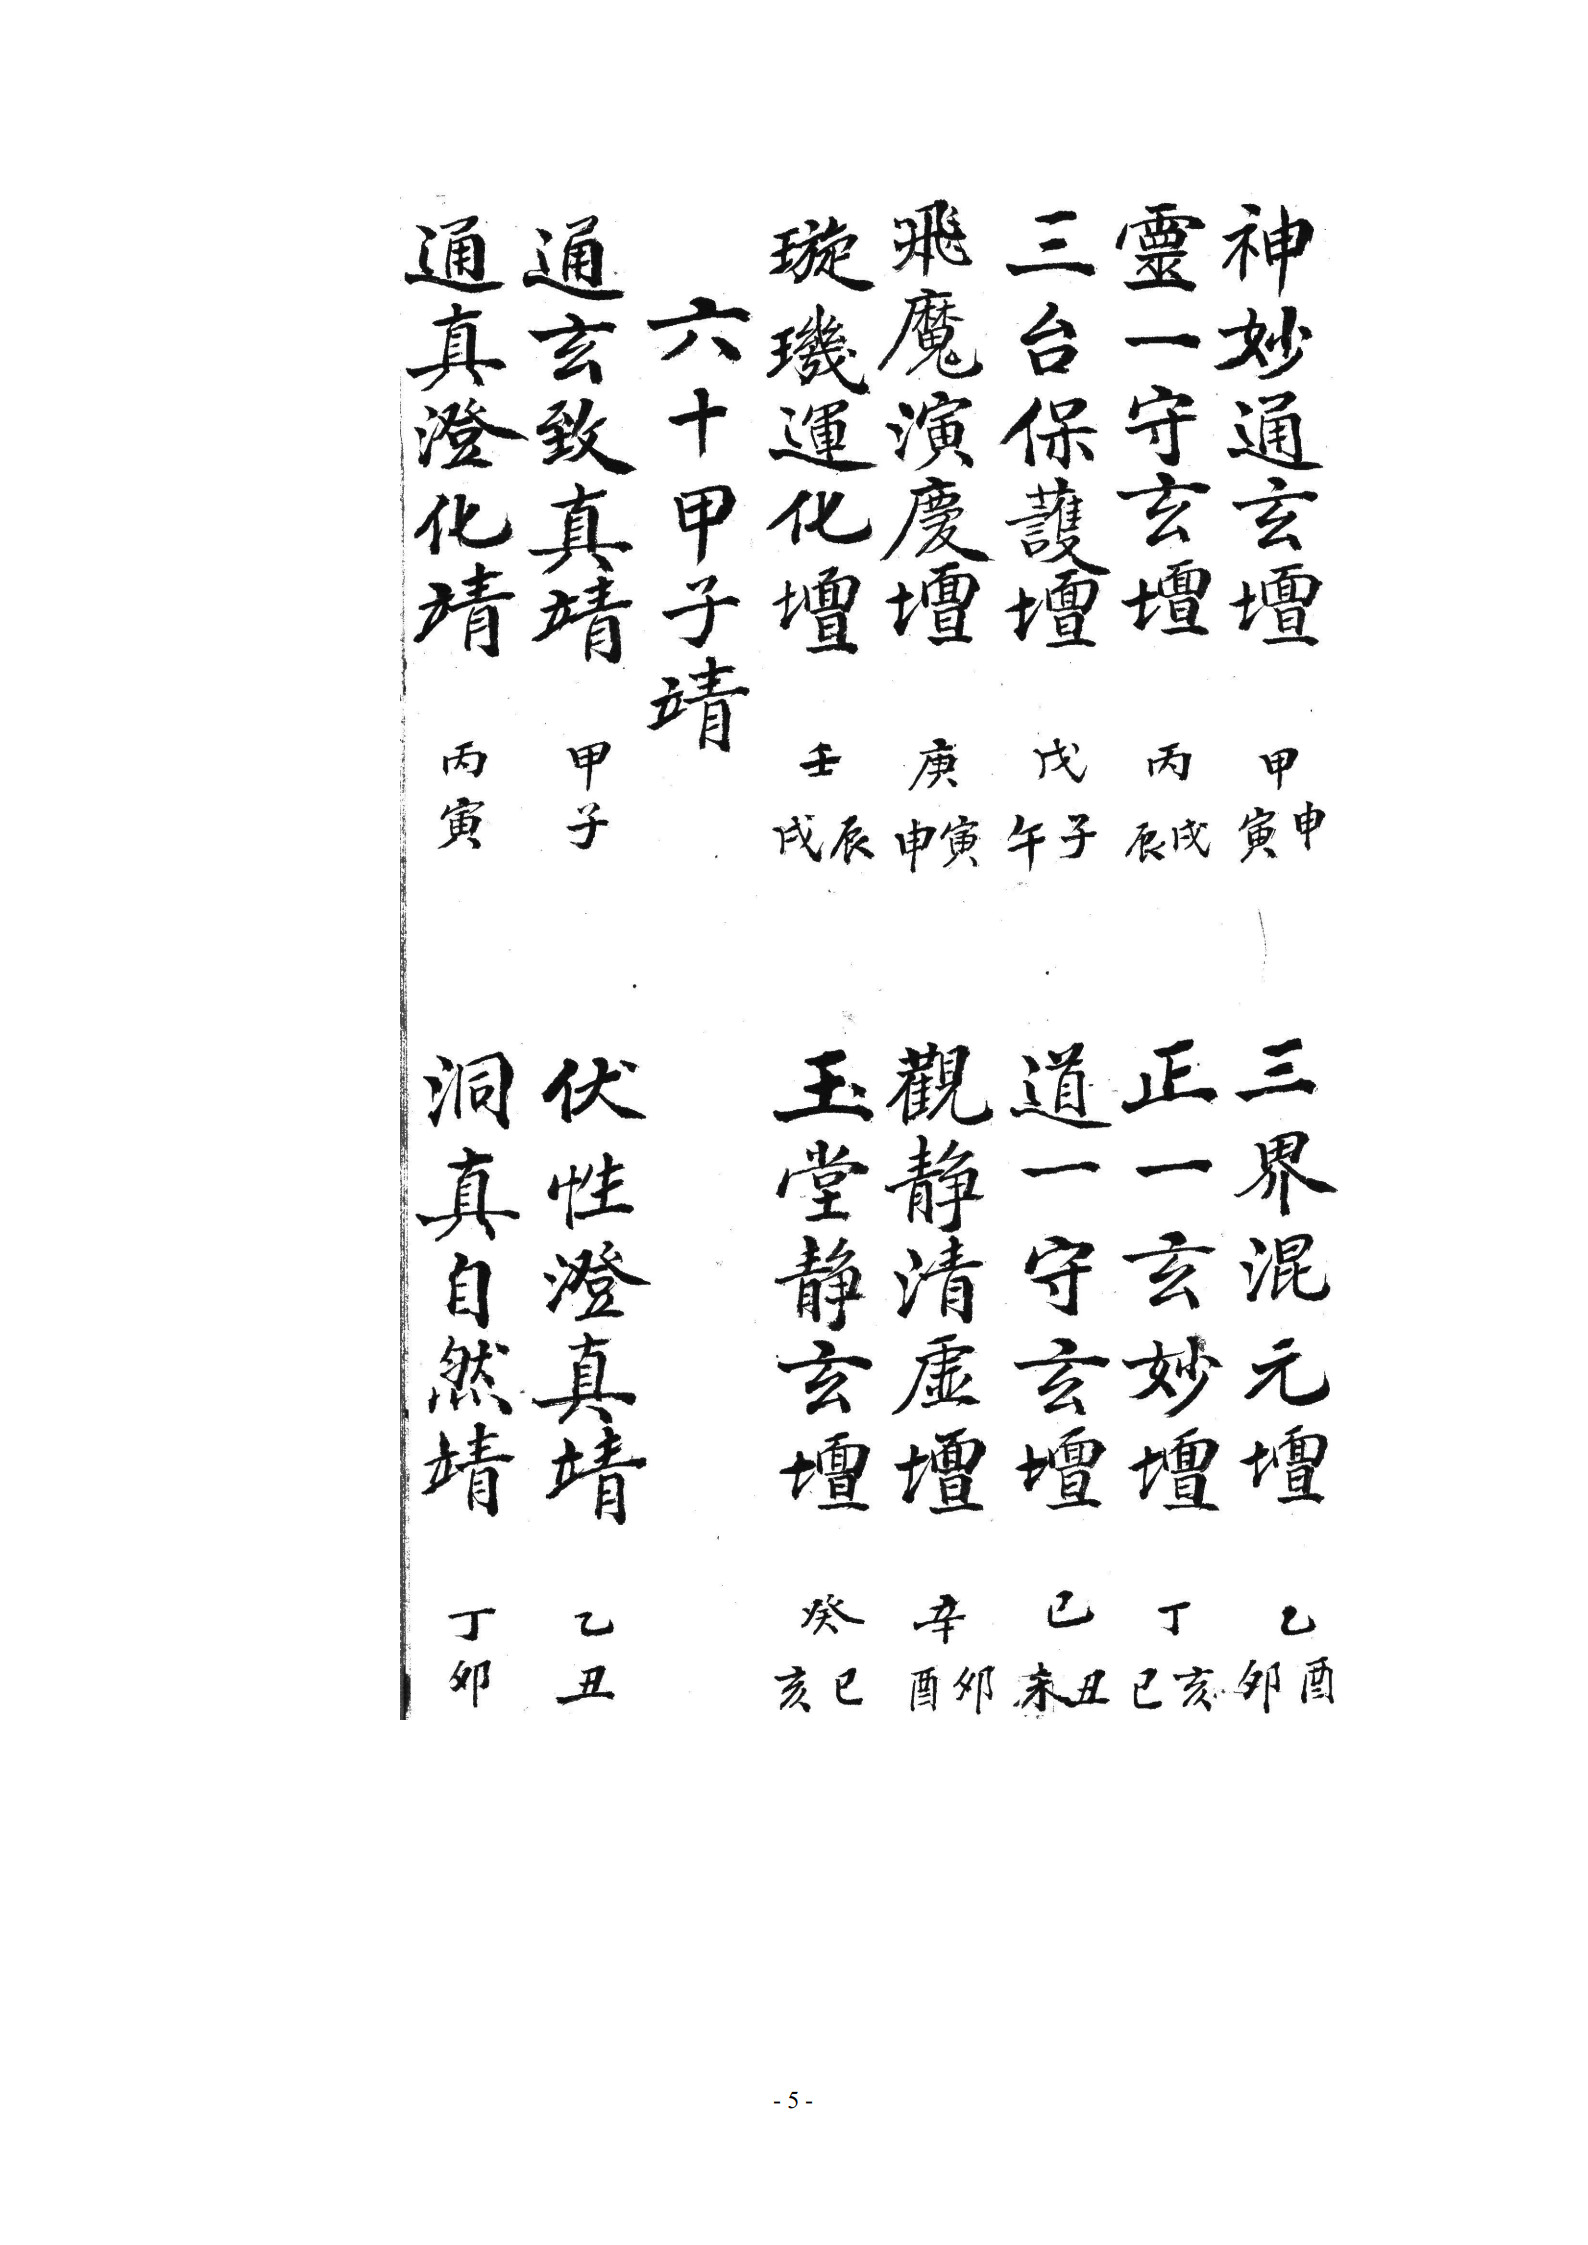 神妙通玄壇 甲申寅 三界混元壇 乙酉卯
靈一守玄壇 丙戌辰 正一玄妙壇 丁亥巳
三台保護壇 戊子午 道一守玄壇 己丑未
飛魔演慶壇 庚寅申 觀静清虛壇 辛卯酉
璇璣運化壇 壬辰戌 玉堂静玄壇 癸巳亥
六十甲子靖
通玄致真靖 甲子 伏性澄真靖 乙丑
通真澄化靖 丙寅 洞真自然靖 丁卯
- 5 -